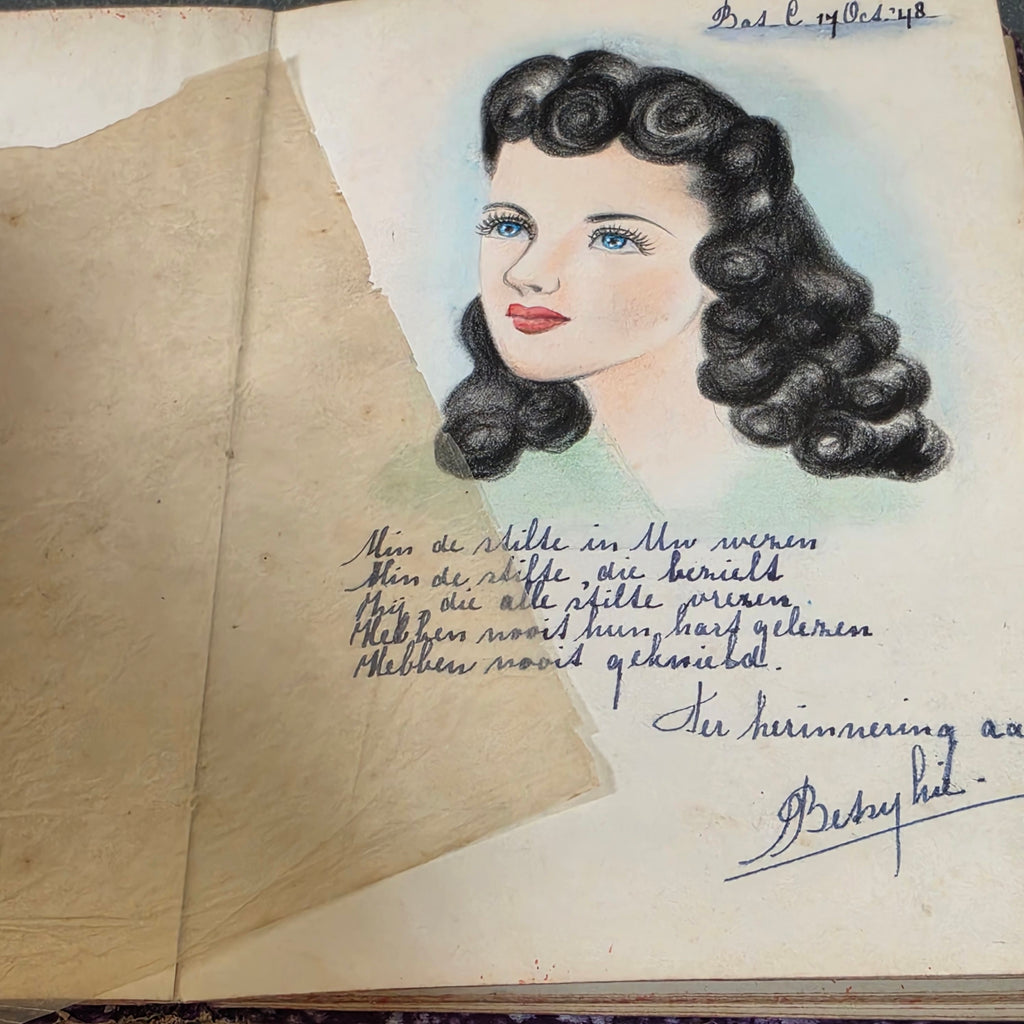 Bat C 17 Oct. '48
Min de stilte in Uw wezen
Min de stilte, die bezielt
Zij, die alle stilte vrezen
Hebben nooit hun hart gelezen
Hebben nooit geknield.
Ter herinnering aa
Betsy